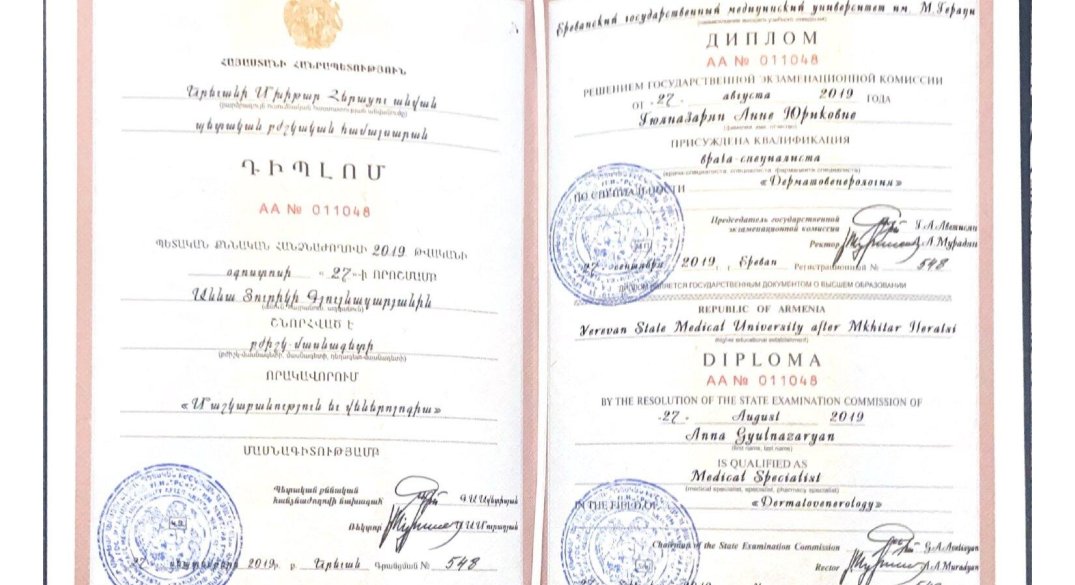 ՀԱՅԱՍՏԱՆԻ ՀԱՆՐԱՊԵՏՈՒԹՅՈՒՆ
Երևանի Մխիթար Հերացու անվան
պետական բժշկական համալսարան
ԴԻՊԼՈՄ
АА № 011048
ՊԵՏԱԿԱՆ ՔՆՆԱԿԱՆ ՀԱՆՁՆԱԺՈՂՈՎԻ 2019 ԹՎԱԿԱՆԻ
օգոստոսի «27»-Ի ՈՐՈՇՄԱՄԲ
Աննա Յուրիկի Գյուլնազարյանին
ՇՆՈՐՀՎԱԾ Է
բժիշկ-մասնագետի
(բժիշկ-մասնագետի, մասնագետի, դեղագետ-մասնագետի)
ՈՐԱԿԱՎՈՐՈՒՄ
«Մաշկաբանություն եւ վեներոլոգիա»
ՄԱՍՆԱԳԻՏՈՒԹՅԱՄԲ
Պետական քննական
հանձնաժողովի նախագահ Գ.Ա.Ավետիսյան
Ռեկտոր Ա.Ա.Մուրադյան
27 2019թ. ք. Երևան Գրանցման № 548
Ереванский государственный медицинский университет им. М.Гераци
(наименование высшего учебного заведения)
ДИПЛОМ
АА № 011048
РЕШЕНИЕМ ГОСУДАРСТВЕННОЙ ЭКЗАМЕНАЦИОННОЙ КОМИССИИ
ОТ «27» августа 2019 ГОДА
Гюлназарян Анне Юриковне
(фамилия, имя, отчество)
ПРИСУЖДЕНА КВАЛИФИКАЦИЯ
врача-специалиста
(врача-специалиста, специалиста, фармацевта-специалиста)
ПО СПЕЦИАЛЬНОСТИ «Дерматовенерология»
Председатель государственной
экзаменационной комиссии Г.А.Аветисян
Ректор А.А.Мурадян
27 сентября 2019 г. Ереван Регистрационный № 548
ДИПЛОМ ЯВЛЯЕТСЯ ГОСУДАРСТВЕННЫМ ДОКУМЕНТОМ О ВЫСШЕМ ОБРАЗОВАНИИ
REPUBLIC OF ARMENIA
Yerevan State Medical University after Mkhitar Heratsi
(higher educational establishment)
DIPLOMA
AA № 011048
BY THE RESOLUTION OF THE STATE EXAMINATION COMMISSION OF
«27» August 2019
Anna Gyulnazaryan
(first name, last name)
IS QUALIFIED AS
Medical Specialist
(medical specialist, specialist, pharmacy specialist)
IN THE FIELD OF «Dermatovenerology»
Chairman of the State Examination Commission G.A.Avetisyan
Rector A.A.Muradyan
27 2019 Yerevan 548